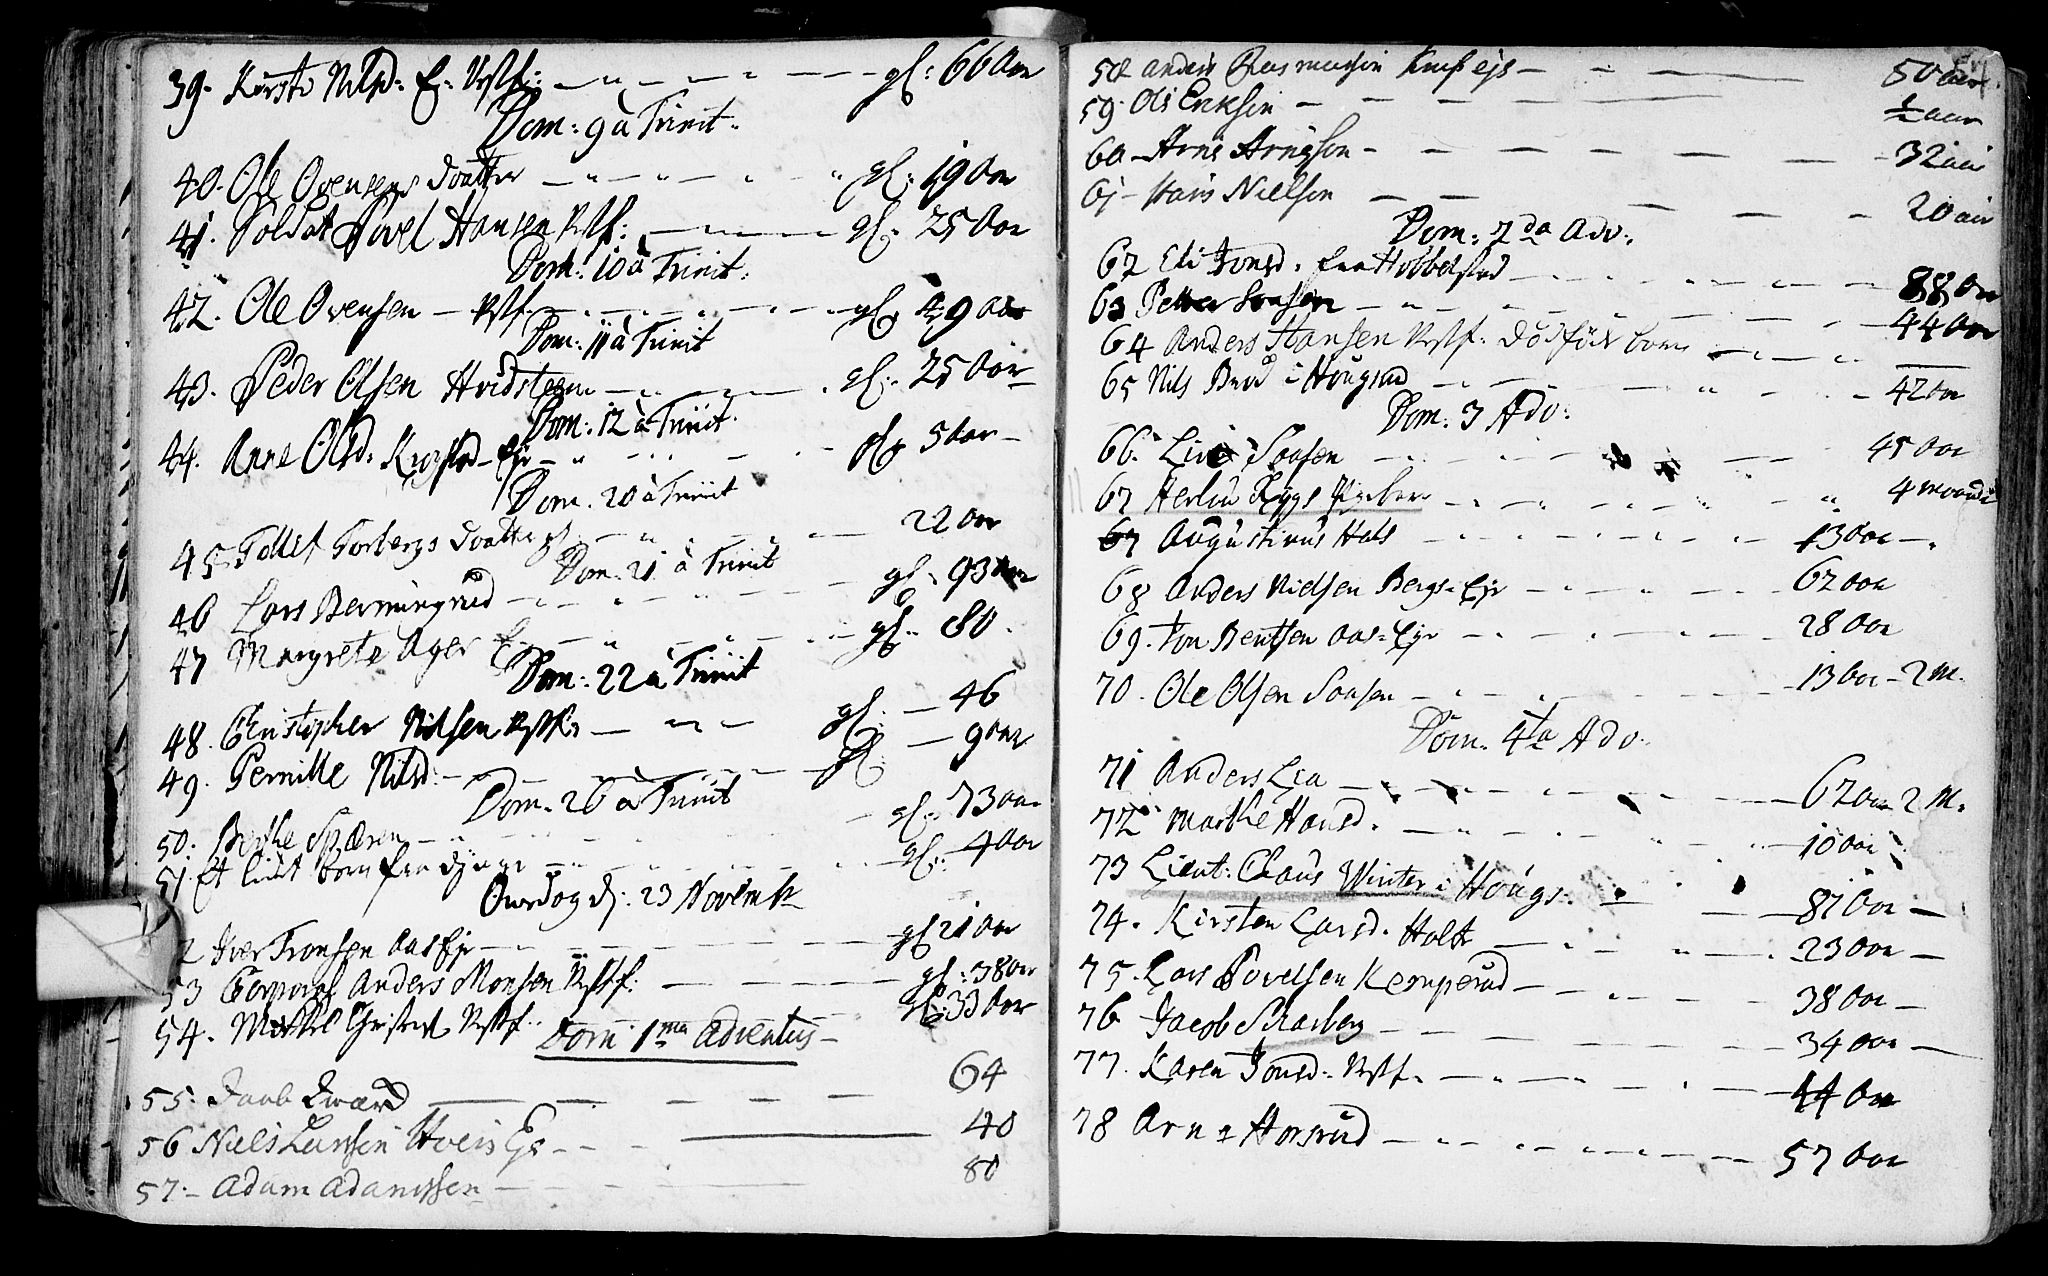 39. Kirsti Nilsd: E: Vestf: gl: 66 Aar
Dom: 9 à Trinit.
40. Ole Ovensens daatter gl: 19 Aar
41. Soldat Povel Hansen Vestf: gl: 25 Aar
Dom: 10 à Trinit:
42. Ole Ovensen Vestf. gl: 49 Aar
Dom: 11 à Trinit
43. Peder Olsen Hvidsteen gl: 25 Aar
Dom: 12 à Trinit.
44. Anne Olsd: Ejr gl: 5 Aar
Dom. 20 à Trinit
45. Tollef Torbergs daatter 22 Aar
Dom. 21 à Trinit
46 Lars Bermingrud gl: 93 Aar
47 Margrete Ager gl: 80.
Dom: 22 à Trinit
48. Christopher Nilsen Vestf: gl: 46
49. Pernille Nilsd: gl: 9 aar
Dom. 26 à Trinit
50. Berthe gl: 73 aar
51. Et lidet barn fra gl: 4 Aar
Onsdag d: 23 Novembr
2 Iver Tronsen Aas Ejr gl 21 Aar
53 Corporal Anders Monsen Vestf: gl: 38 Aar
54. Mikkel Christens Vestf. gl: 33 Aar
Dom 1ma Adventus
55. 64
56 Niels Larssen Hveis Ej 40
57. Adam Adamssen 80
58 Anders Rasmussen ejs 50 aar
59. Ole Eriksen ½ aar
60 Arne Arneson 32 aar
61 Hans Nielson 20 air
Dom: 2da Adv:
62 Eli Jonsd. fra Hobbelstad 88 Aar
63 Petter Sonsen 44 Aar
64 Anders Hansen Vestf. dødfød barn
65 Nils i Hougsrud 42 aar
Dom. 3 Adv:
66. Sonsen 45 Aar
67 4 maaneder
67 Augustinus Hals 13 Aar
68 Anders Nielsen Bergs-Ejr 62 Aar
69. Jon Bentsen Aas-Ejr 28 Aar
70. Ole Olsen Sonsen 13 Aar 2 M.
Dom. 4ta Adv.
71 Anders Lia 62 Aar 2 M.
72 Marthe Hansd. 10 Aar
73 Lieut: Claus Winter i Hougs: 87 Aar
74. Kirsten Larsd. Holt 23 Aar
75. Lars Povelsen Kemperud 38 Aar
76 Jacob 34 Aar
77. Karen Jonsd: Vestf. 44 Aar
78 Arne Horsrud 57 Aar